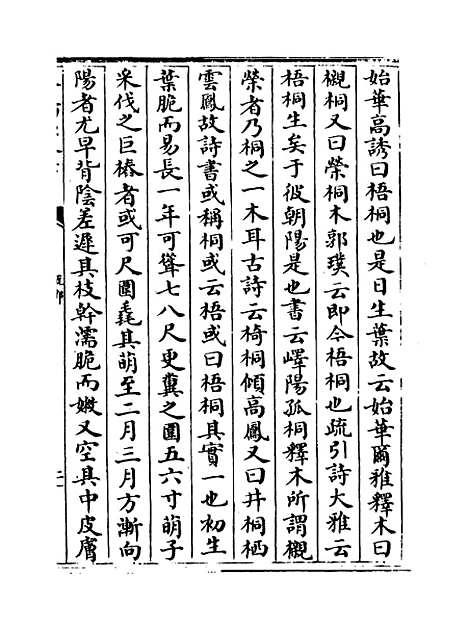 始華高誘曰梧桐也是日生葉故云始華爾雅釋木曰
櫬桐又曰榮桐木郭璞云即今梧桐也疏引詩大雅云
梧桐生矣于彼朝陽是也書云嶧陽孤桐釋木所謂櫬
榮者乃桐之一木耳古詩云椅桐傾高鳳又曰井桐栖
雲鳳故詩書或稱桐或云梧或曰梧桐其實一也初生
葉脆而易長一年可聳七八尺更糞之圍五六寸萌子
采伐之巨樁者或可尺圍毳其萌至二月三月方漸向
陽者尤早背陰差遲其枝幹濡脆而嫩又空其中皮膚